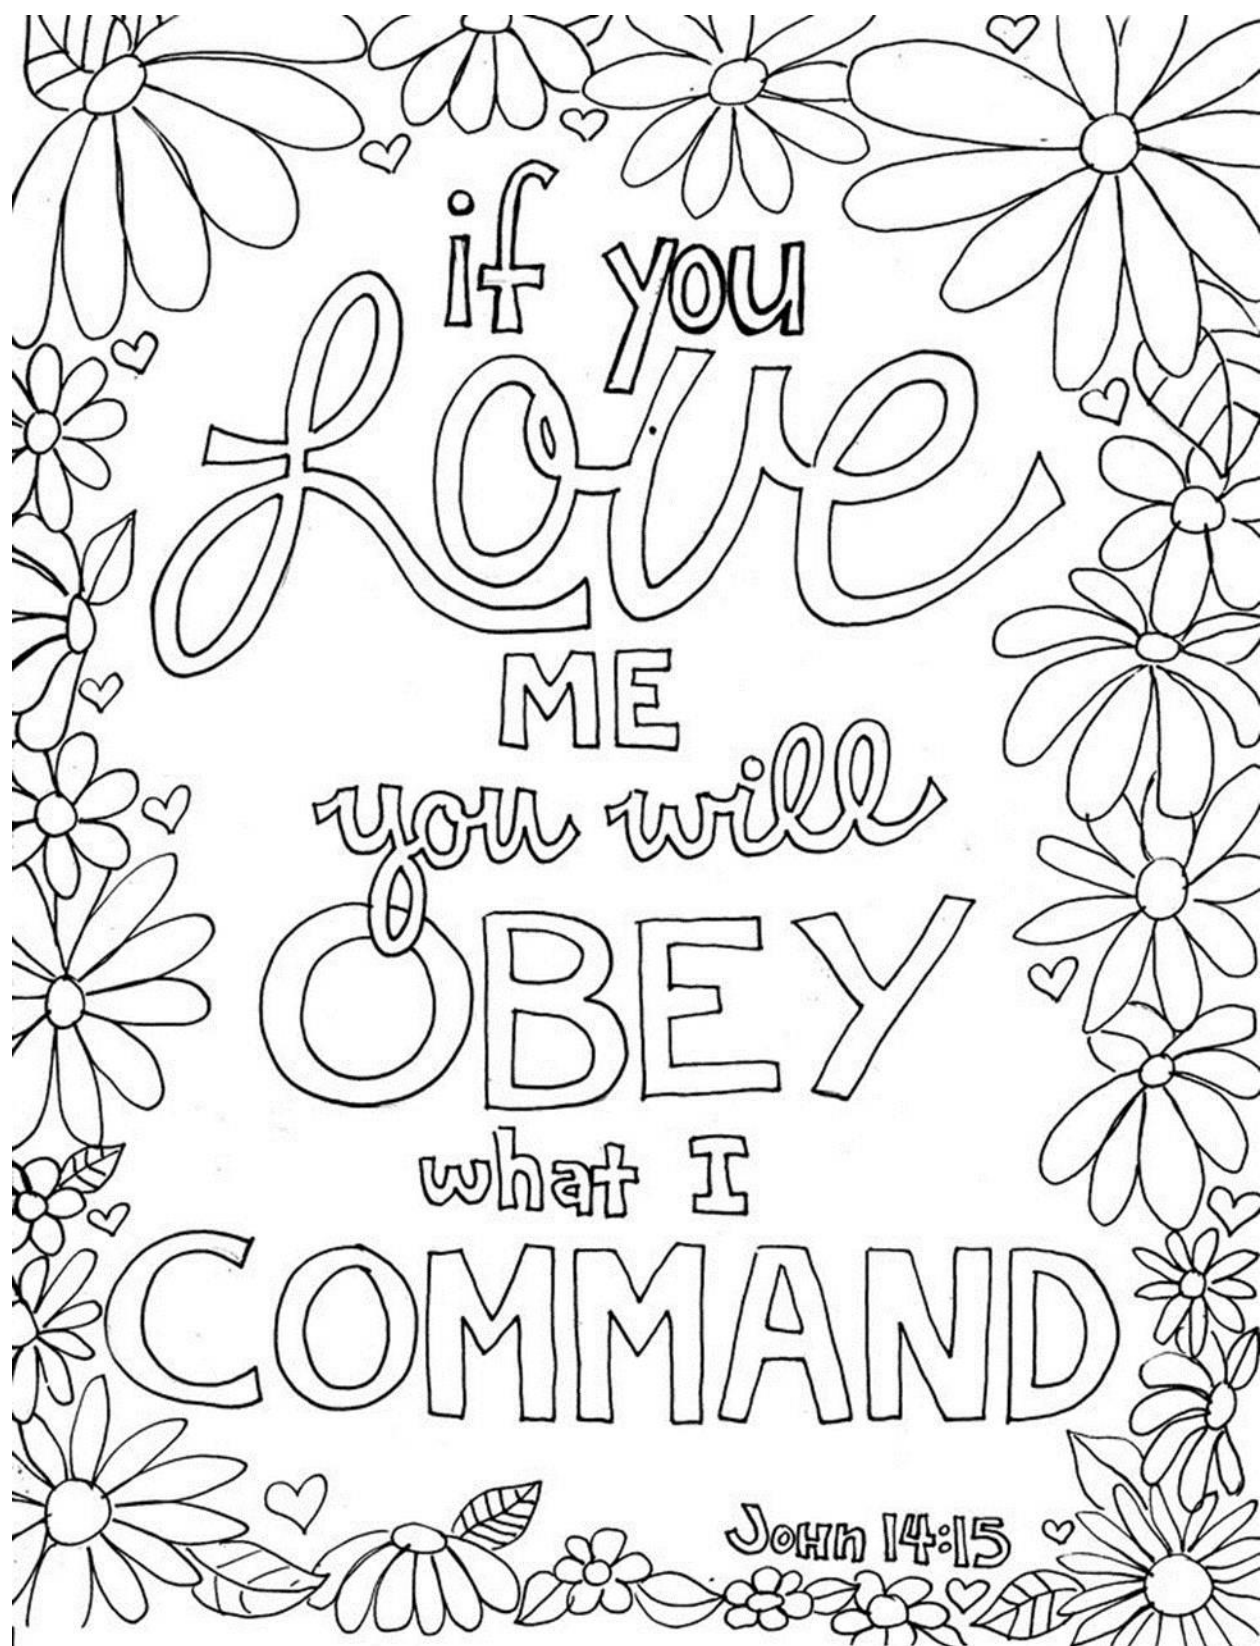 if you
Love
ME
you will
OBEY
what I
COMMAND
John 14:15